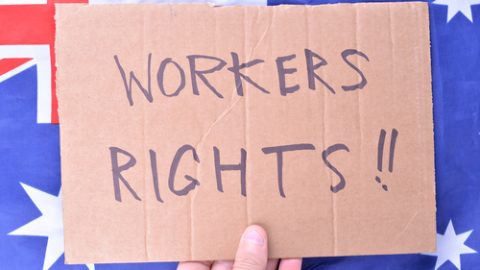 WORKERS
RIGHTS!!